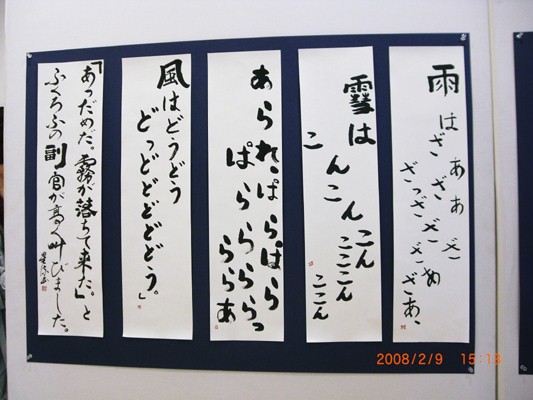 雨は
ざあざあ
ざっざざ
ざざざあ、
雪は
こんこん
こんこここん
ここん
あられぱらぱら
ぱらららららっ
らららあ
風はどうどう
どっどどどどどう。」
「あっだめだ。霧が落ちて来た。」と
ふくろふの副官が高く叫びました。
2008/2/9 15:13